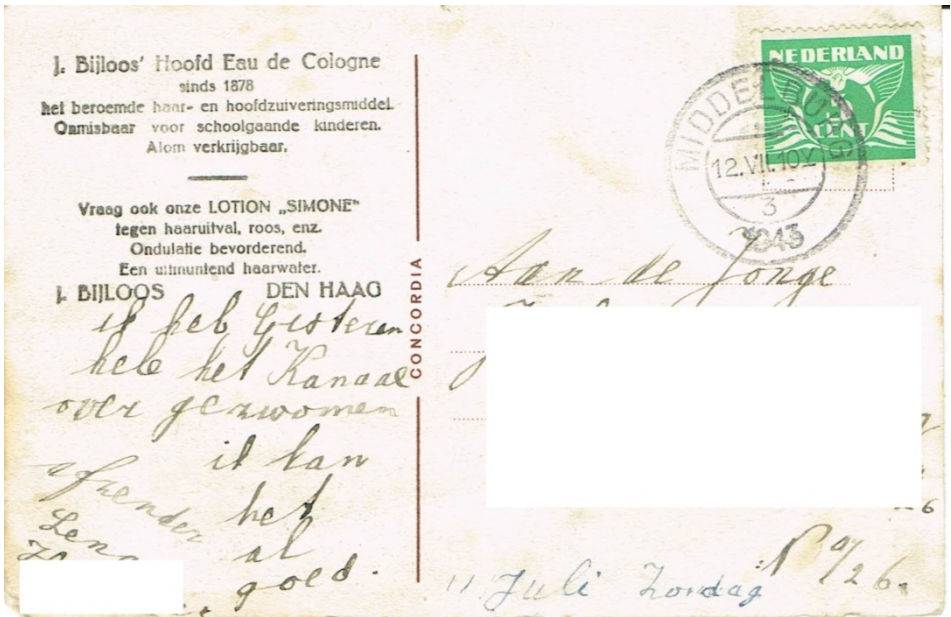 J. Bijloos' Hoofd Eau de Cologne
sinds 1878
het beroemde haar- en hoofdzuiveringsmiddel.
Onmisbaar voor schoolgaande kinderen.
Alom verkrijgbaar.
Vraag ook onze LOTION „SIMONE"
tegen haaruitval, roos, enz.
Ondulatie bevorderend.
Een uitmuntend haarwater.
J. BIJLOOS DEN HAAG
ik heb Gisteren
hele het Kanaal
over gezwomen
ik kan
het
al
goed.
afzender
CONCORDIA
NEDERLAND
CENT
MIDDELBURG
12.VII.10
3
1943
Aan de Jonge
11 Juli Zondag